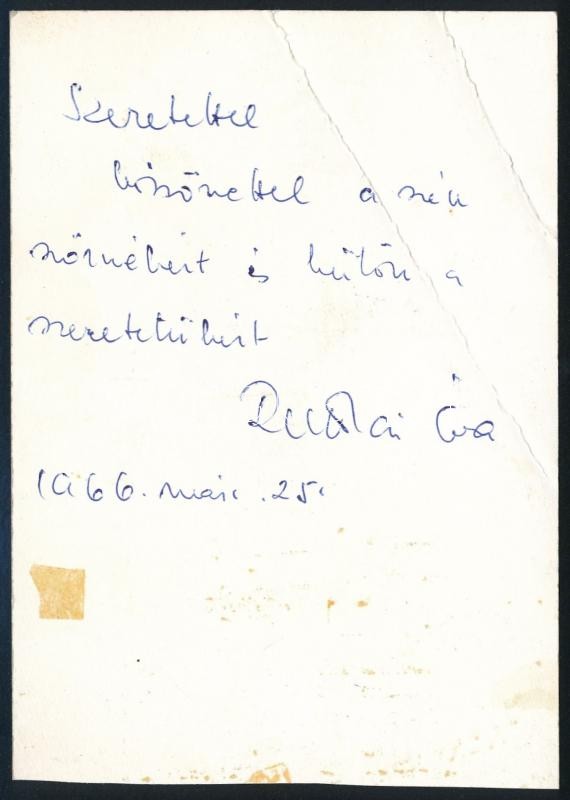 Szeretettel
köszönettel a szép
és külön a
szeretetükért
Ruttkai Éva
1966. márc. 25.